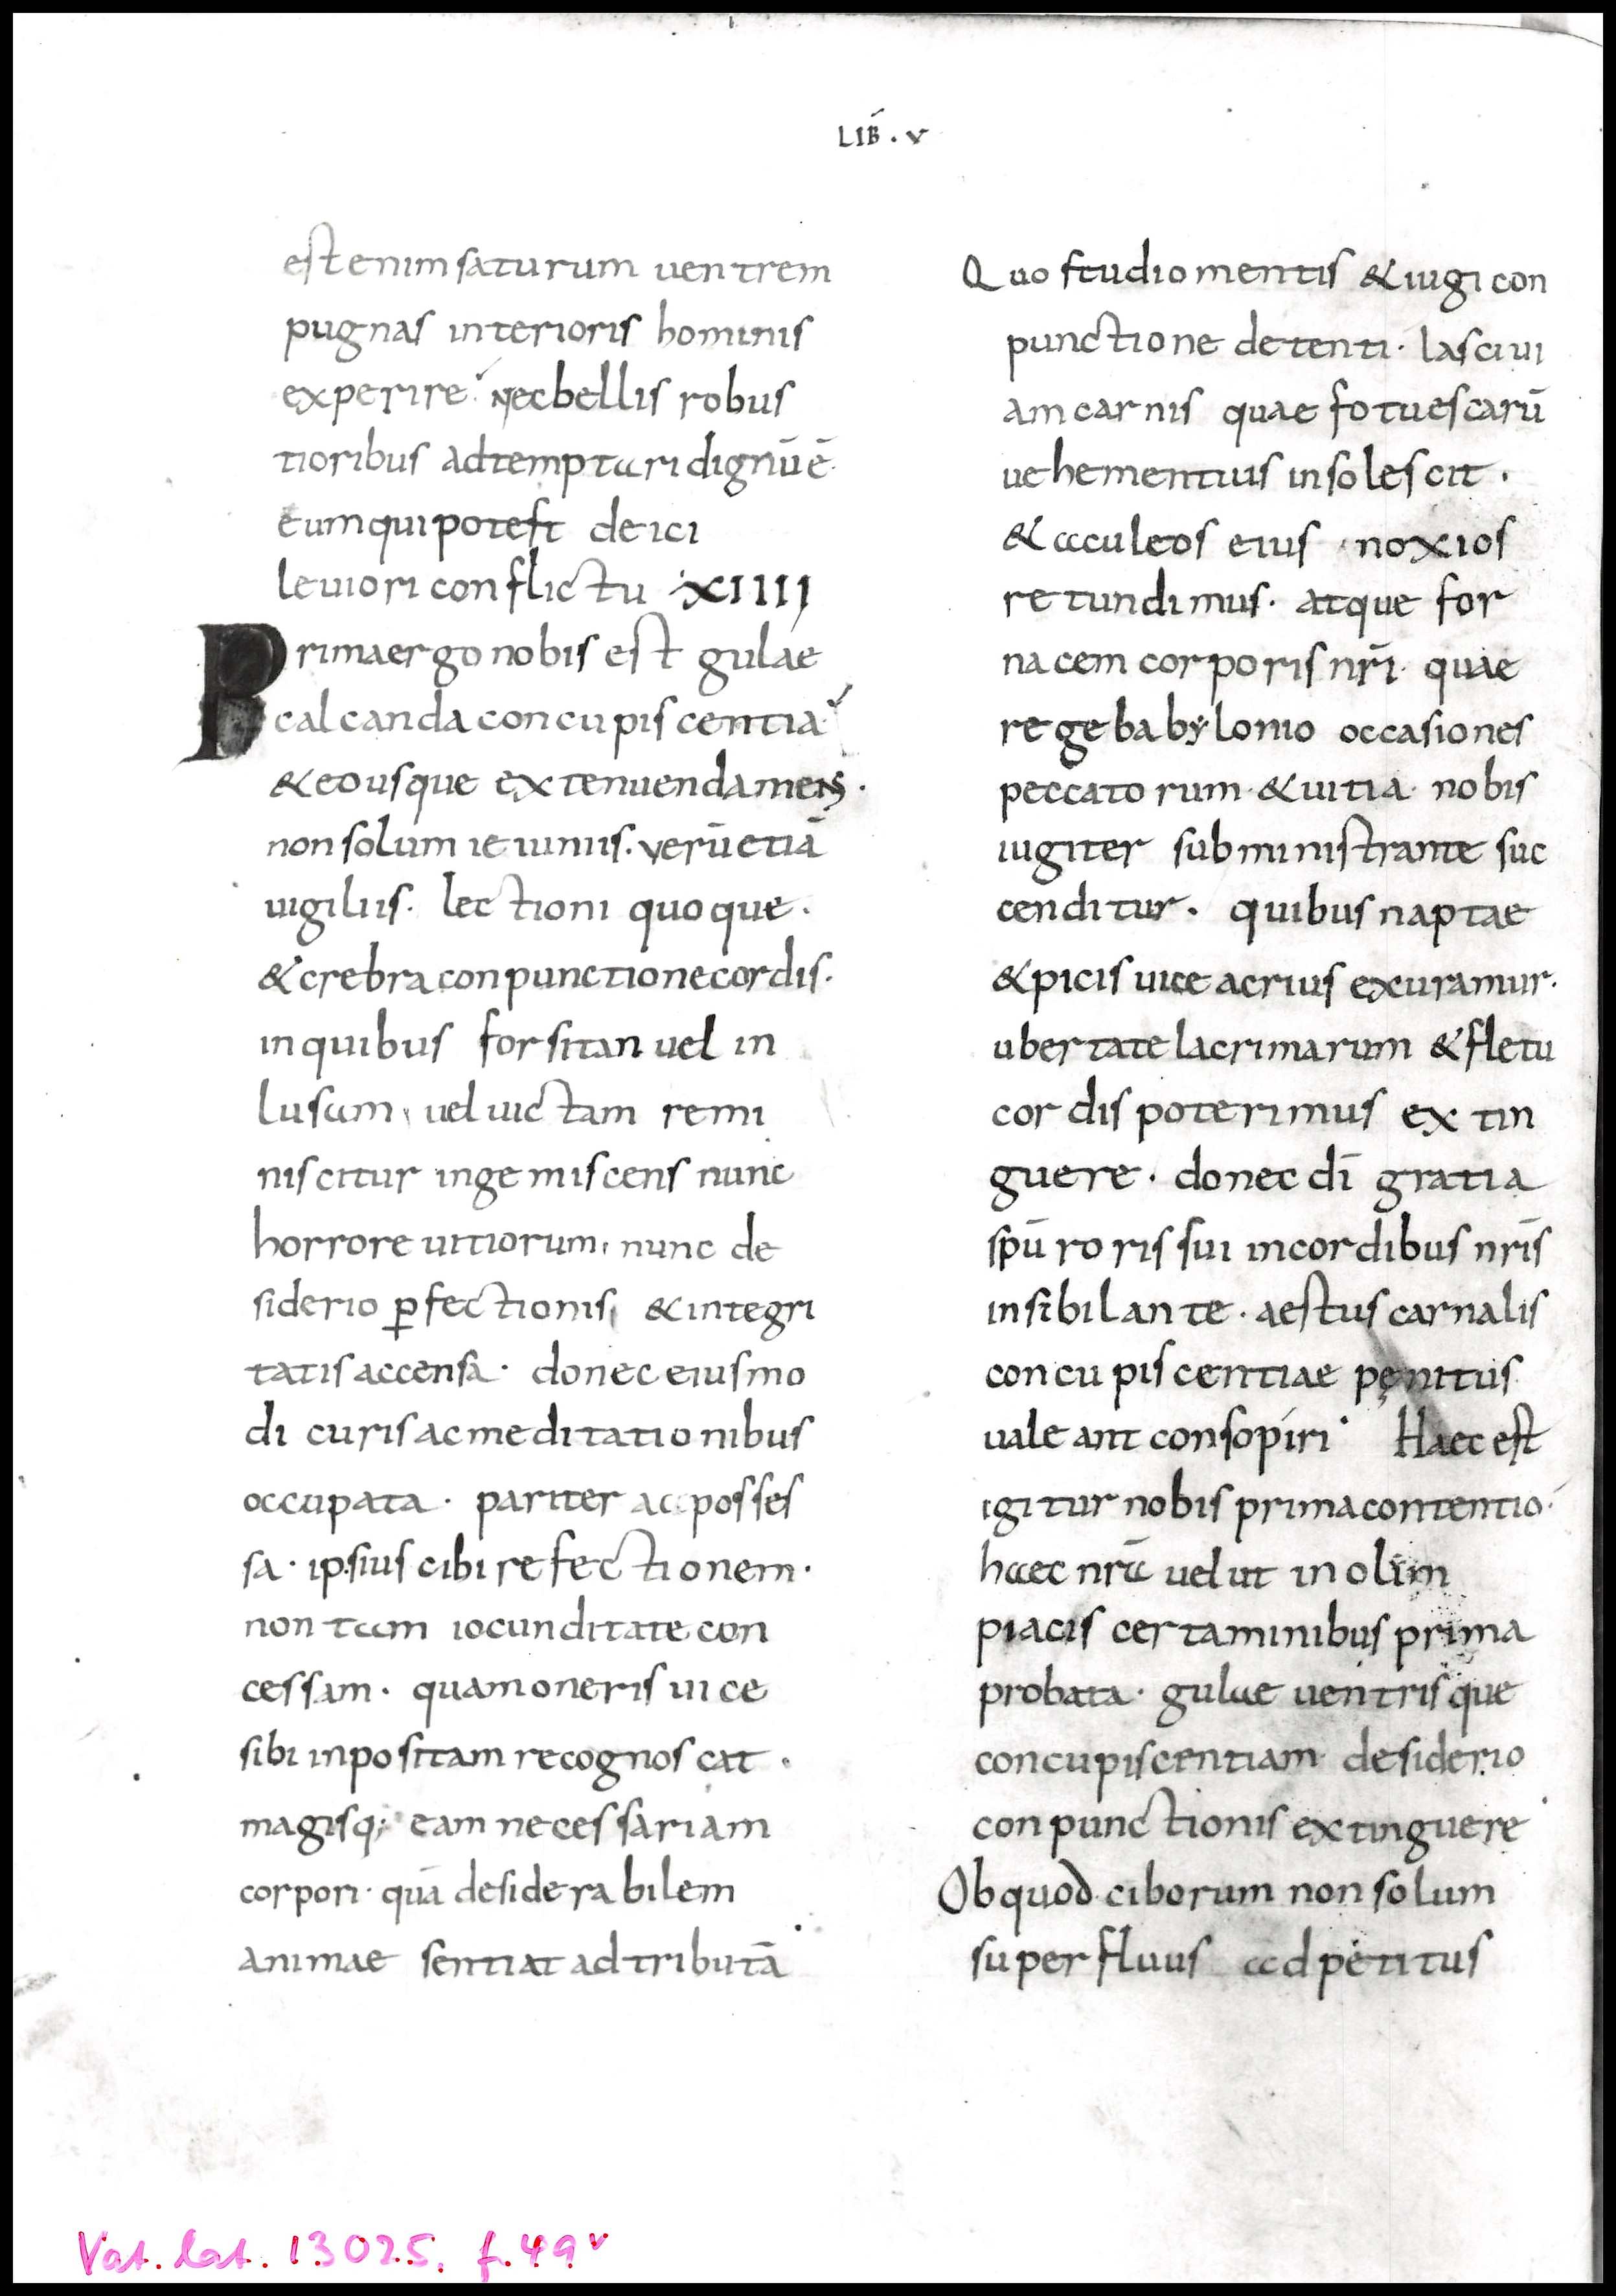 LIB̅ · v
est enim saturum uentrem
pugnas interioris hominis
experire. Nec bellis robus
tioribus adtemptari dignū ē.
eum qui potest deici
leuiori conflictu · XIIII
Prima ergo nobis est gulae
calcanda concupiscentia
& eo usque extenuenda mens ·
non solum ieiuniis. verū etiā
uigiliis. lectioni quoque.
& crebra conpunctione cordis.
in quibus forsitan uel in
lusam, uel uictam remi
niscitur ingemiscens nunc
horrore uitiorum, nunc de
siderio ꝑfectionis, & integri
tatis accensa · donec eiusmo
di curis ac meditationibus
occupata · pariter ac posses
sa · ipsius cibi refectionem ·
non tam iocunditate con
cessam · quam oneris uice
sibi inpositam recognoscat ·
magisq; eam necessariam
corpori · quā desiderabilem
animae sentiat adtributā
Quo studio mentis & iugi con
punctione detenti · lasciui
am carnis quae fotu escarū
uehementius insolescit ·
& aculeos eius noxios
retundimus · atque for
nacem corporis nr̄i · quae
rege babylonio occasiones
peccatorum · & uitia · nobis
iugiter subministrante suc
cenditur · quibus naptae
& picis uice acrius exuramur ·
ubertate lacrimarum & fletu
cordis poterimus extin
guere · donec dī gratia
spū roris sui in cordibus nr̄is
insibilante · aestus carnalis
concupiscentiae penitus
ualeant consopiri · Haec est
igitur nobis prima contentio ·
haec nr̄a uelut in olim
piacis certaminibus prima
probata · gulae uentrisque
concupiscentiam desiderio
conpunctionis extinguere
Ob quod ciborum non solum
superfluus adpetitus
Vat. lat. 13025. f. 49v